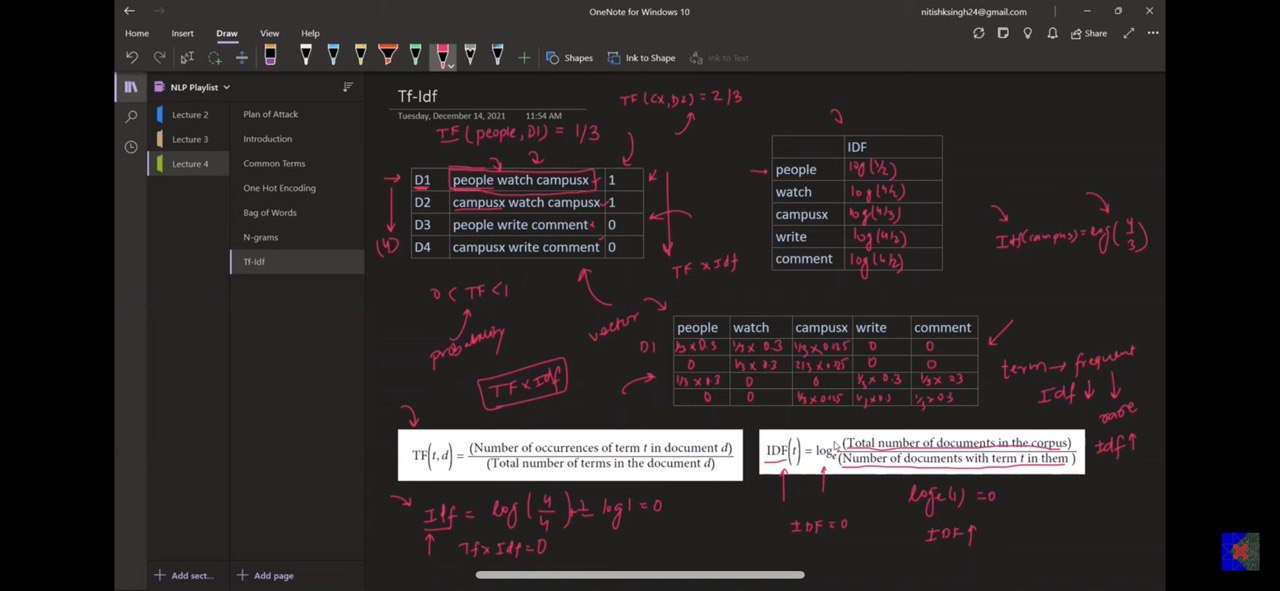 OneNote for Windows 10
nitishksingh24@gmail.com
Home Insert Draw View Help
Share
Shapes Ink to Shape Ink to Text
NLP Playlist
Lecture 2
Lecture 3
Lecture 4
Plan of Attack
Introduction
Common Terms
One Hot Encoding
Bag of Words
N-grams
Tf-Idf
Add sect...
Add page
Tf-Idf
Tuesday, December 14, 2021 11:54 AM
TF(CX,D2) = 2/3
TF(people,D1) = 1/3
D1 people watch campusx 1
D2 campusx watch campusx 1
D3 people write comment 0
D4 campusx write comment 0
(4)
TF x Idf
0 < TF < 1
probability
vector
TF x Idf
IDF
people log(4/2)
watch log(4/2)
campusx log(4/3)
write log(4/2)
comment log(4/2)
Idf(campus) = log(4/3)
people watch campusx write comment
D1 1/3 x 0.3 1/3 x 0.3 1/3 x 0.125 0 0
0 1/3 x 0.3 2/3 x 0.125 0 0
1/3 x 0.3 0 0 1/3 x 0.3 1/3 x 0.3
0 0 1/3 x 0.125 1/3 x 0.3 1/3 x 0.3
term → frequent
Idf ↓
rare
Idf ↑
TF(t,d) = (Number of occurrences of term t in document d)
(Total number of terms in the document d)
IDF(t) = loge (Total number of documents in the corpus)
(Number of documents with term t in them )
Idf = log(4/4) = log 1 = 0
Tf x Idf = 0
IDF = 0
loge(1) = 0
IDF ↑